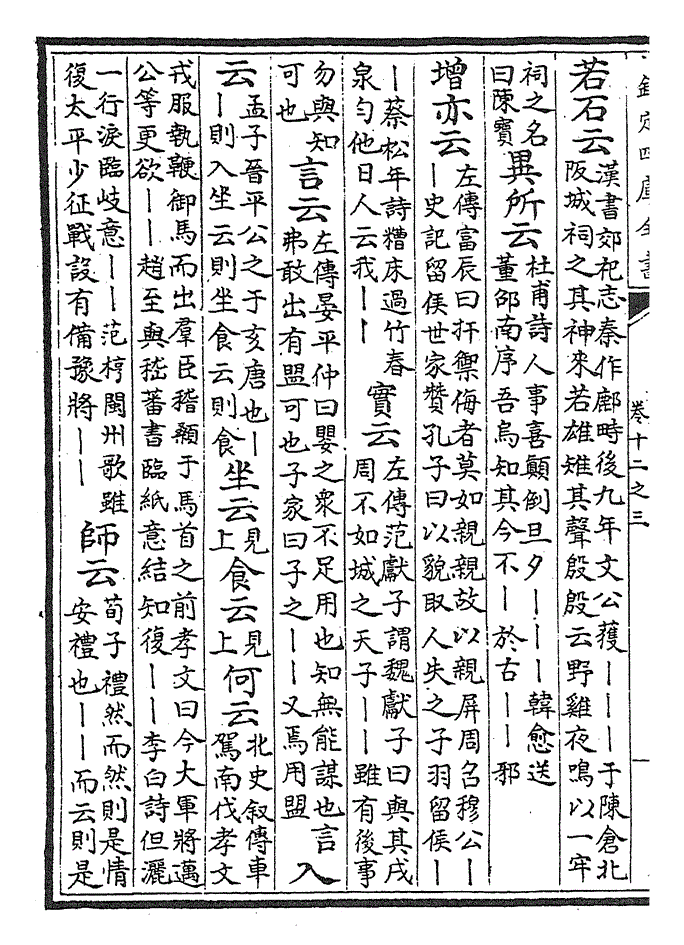 欽定四庫全書
卷十二之三
一
若石云
漢書郊祀志秦作鄜時後九年文公獲丨丨丨于陳倉北
阪城祠之其神來若雄雉其聲殷殷云野雞夜鳴以一牢
祠之名
曰陳寶
異所云
杜甫詩人事喜顛倒旦夕丨丨丨韓愈送
董邵南序吾烏知其今不丨於古丨丨邪
增亦云
左傳富辰曰扞禦侮者莫如親親故以親屏周召穆公丨
丨史記留侯世家贊孔子曰以貌取人失之子羽留侯丨
丨蔡松年詩糟床過竹春
泉勻他日人云我丨丨
實云
左傳范獻子謂魏獻子曰與其戍
周不如城之天子丨丨雖有後事
勿與知
可也
言云
左傳晏平仲曰嬰之衆不足用也知無能謀也言
弗敢出有盟可也子家曰子之丨丨又焉用盟
入
云
孟子晉平公之于亥唐也丨
丨則入坐云則坐食云則食
坐云
見
上
食云
見
上
何云
北史叙傳車
駕南伐孝文
戎服執鞭御馬而出羣臣稽顙于馬首之前孝文曰今大軍將邁
公等更欲丨丨趙至與嵇蕃書臨紙意結知復丨丨李白詩但灑
一行淚臨岐意丨丨范梈閩州歌雖
復太平少征戰設有備豫將丨丨
師云
荀子禮然而然則是情
安禮也丨丨而云則是